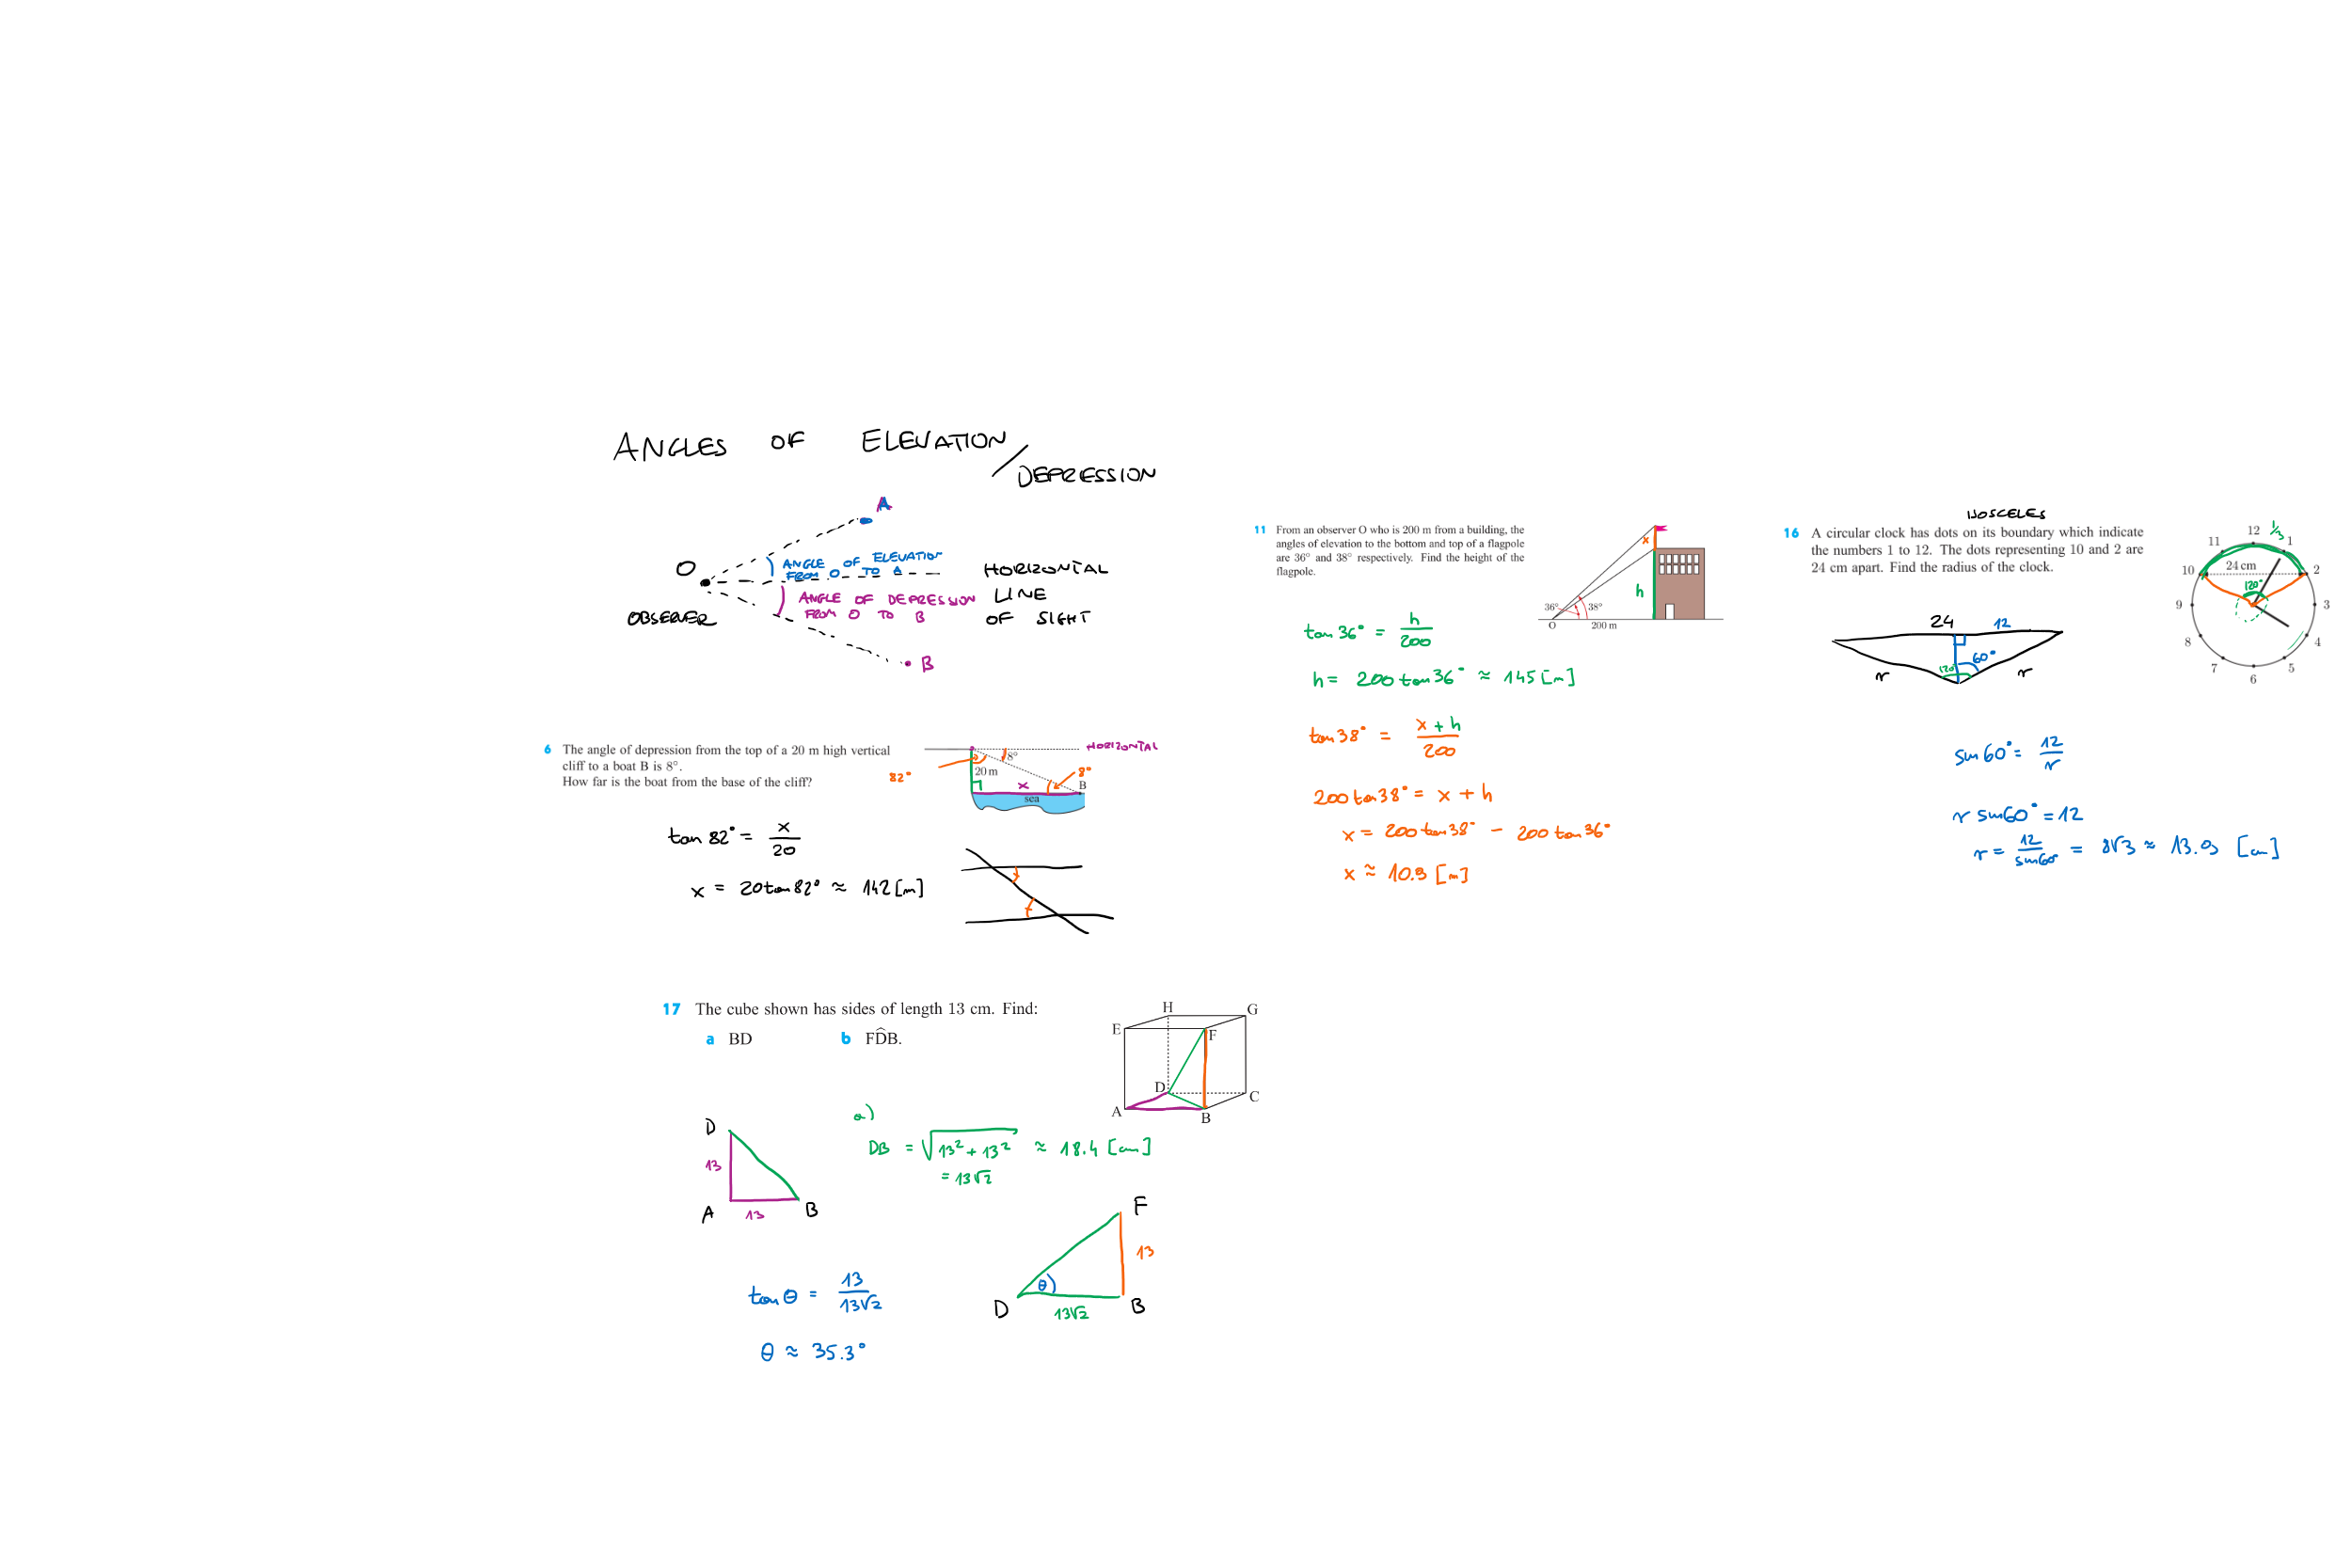 ANGLES OF ELEVATION/
DEPRESSION
A
O
ANGLE OF ELEVATION
FROM O TO A
HORIZONTAL
LINE
OF SIGHT
ANGLE OF DEPRESSION
FROM O TO B
OBSERVER
B
6 The angle of depression from the top of a 20 m high vertical
cliff to a boat B is 8°.
How far is the boat from the base of the cliff?
HORIZONTAL
8°
82°
20 m
x
8°
B
sea
tan 82° = x/20
x = 20 tan 82° ≈ 142 [m]
11 From an observer O who is 200 m from a building, the
angles of elevation to the bottom and top of a flagpole
are 36° and 38° respectively. Find the height of the
flagpole.
x
h
36°
38°
O
200 m
tan 36° = h/200
h = 200 tan 36° ≈ 145 [m]
tan 38° = x + h/200
200 tan 38° = x + h
x = 200 tan 38° - 200 tan 36°
x ≈ 10.9 [m]
ISOSCELES
16 A circular clock has dots on its boundary which indicate
the numbers 1 to 12. The dots representing 10 and 2 are
24 cm apart. Find the radius of the clock.
12
1/3
11
1
10
24 cm
2
120°
9
3
8
4
7
5
6
24
12
120°
60°
r
r
sin 60° = 12/r
r sin 60° = 12
r = 12/sin 60° = 8√3 ≈ 13.9 [cm]
17 The cube shown has sides of length 13 cm. Find:
a BD b FD̂B.
H
G
E
F
D
C
A
B
D
13
A
13
B
a)
DB = √13² + 13² ≈ 18.4 [cm]
= 13√2
F
13
θ
D
13√2
B
tan θ = 13/13√2
θ ≈ 35.3°